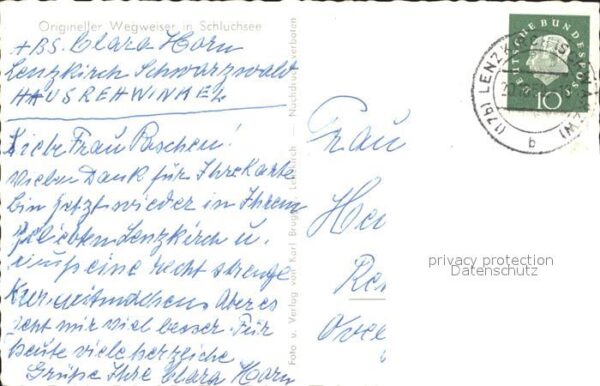 Origineller Wegweiser in Schluchsee
+BS. Clara Horn
Lenzkirch Schwarzwald
HAUS REHWINKEL
Liebe Frau Paschen!
Vielen Dank für Ihre Karte
bin jetzt wieder in Ihrem
geliebten Lenzkirch u.
muß eine recht strenge
Kur mitmachen. Aber es
geht mir viel besser. Für
heute viele herzliche
Grüße Ihre Clara Horn
Foto u. Verlag von Karl Brugger, Lenzkirch — Nachdruck verboten
DEUTSCHE BUNDESPOST
10
(17b) LENZKIRCH (SCHWARZW)
b
Frau
Hei
Re
Ove
privacy protection
Datenschutz